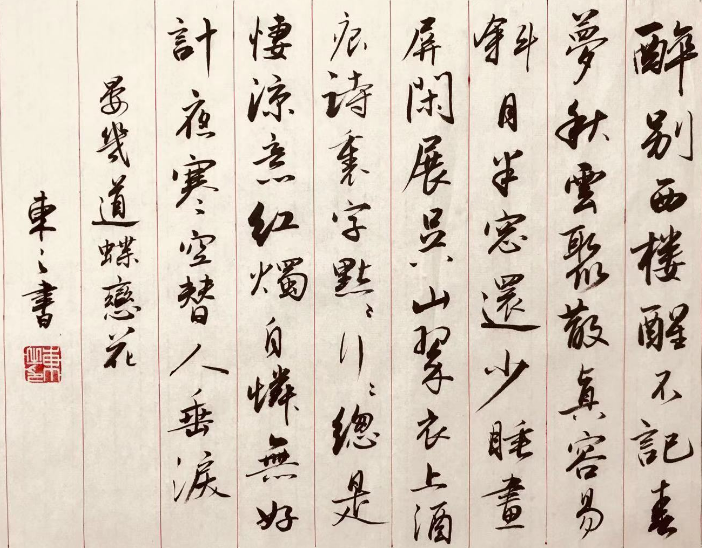 醉别西楼醒不記春
夢秋雲聚散真容易
斜月半窓還少睡畫
屏閑展吳山翠衣上酒
痕詩裏字點〻行〻總是
悽涼意紅燭自憐無好
計夜寒〻空替人垂淚
晏幾道蝶戀花
東〻書